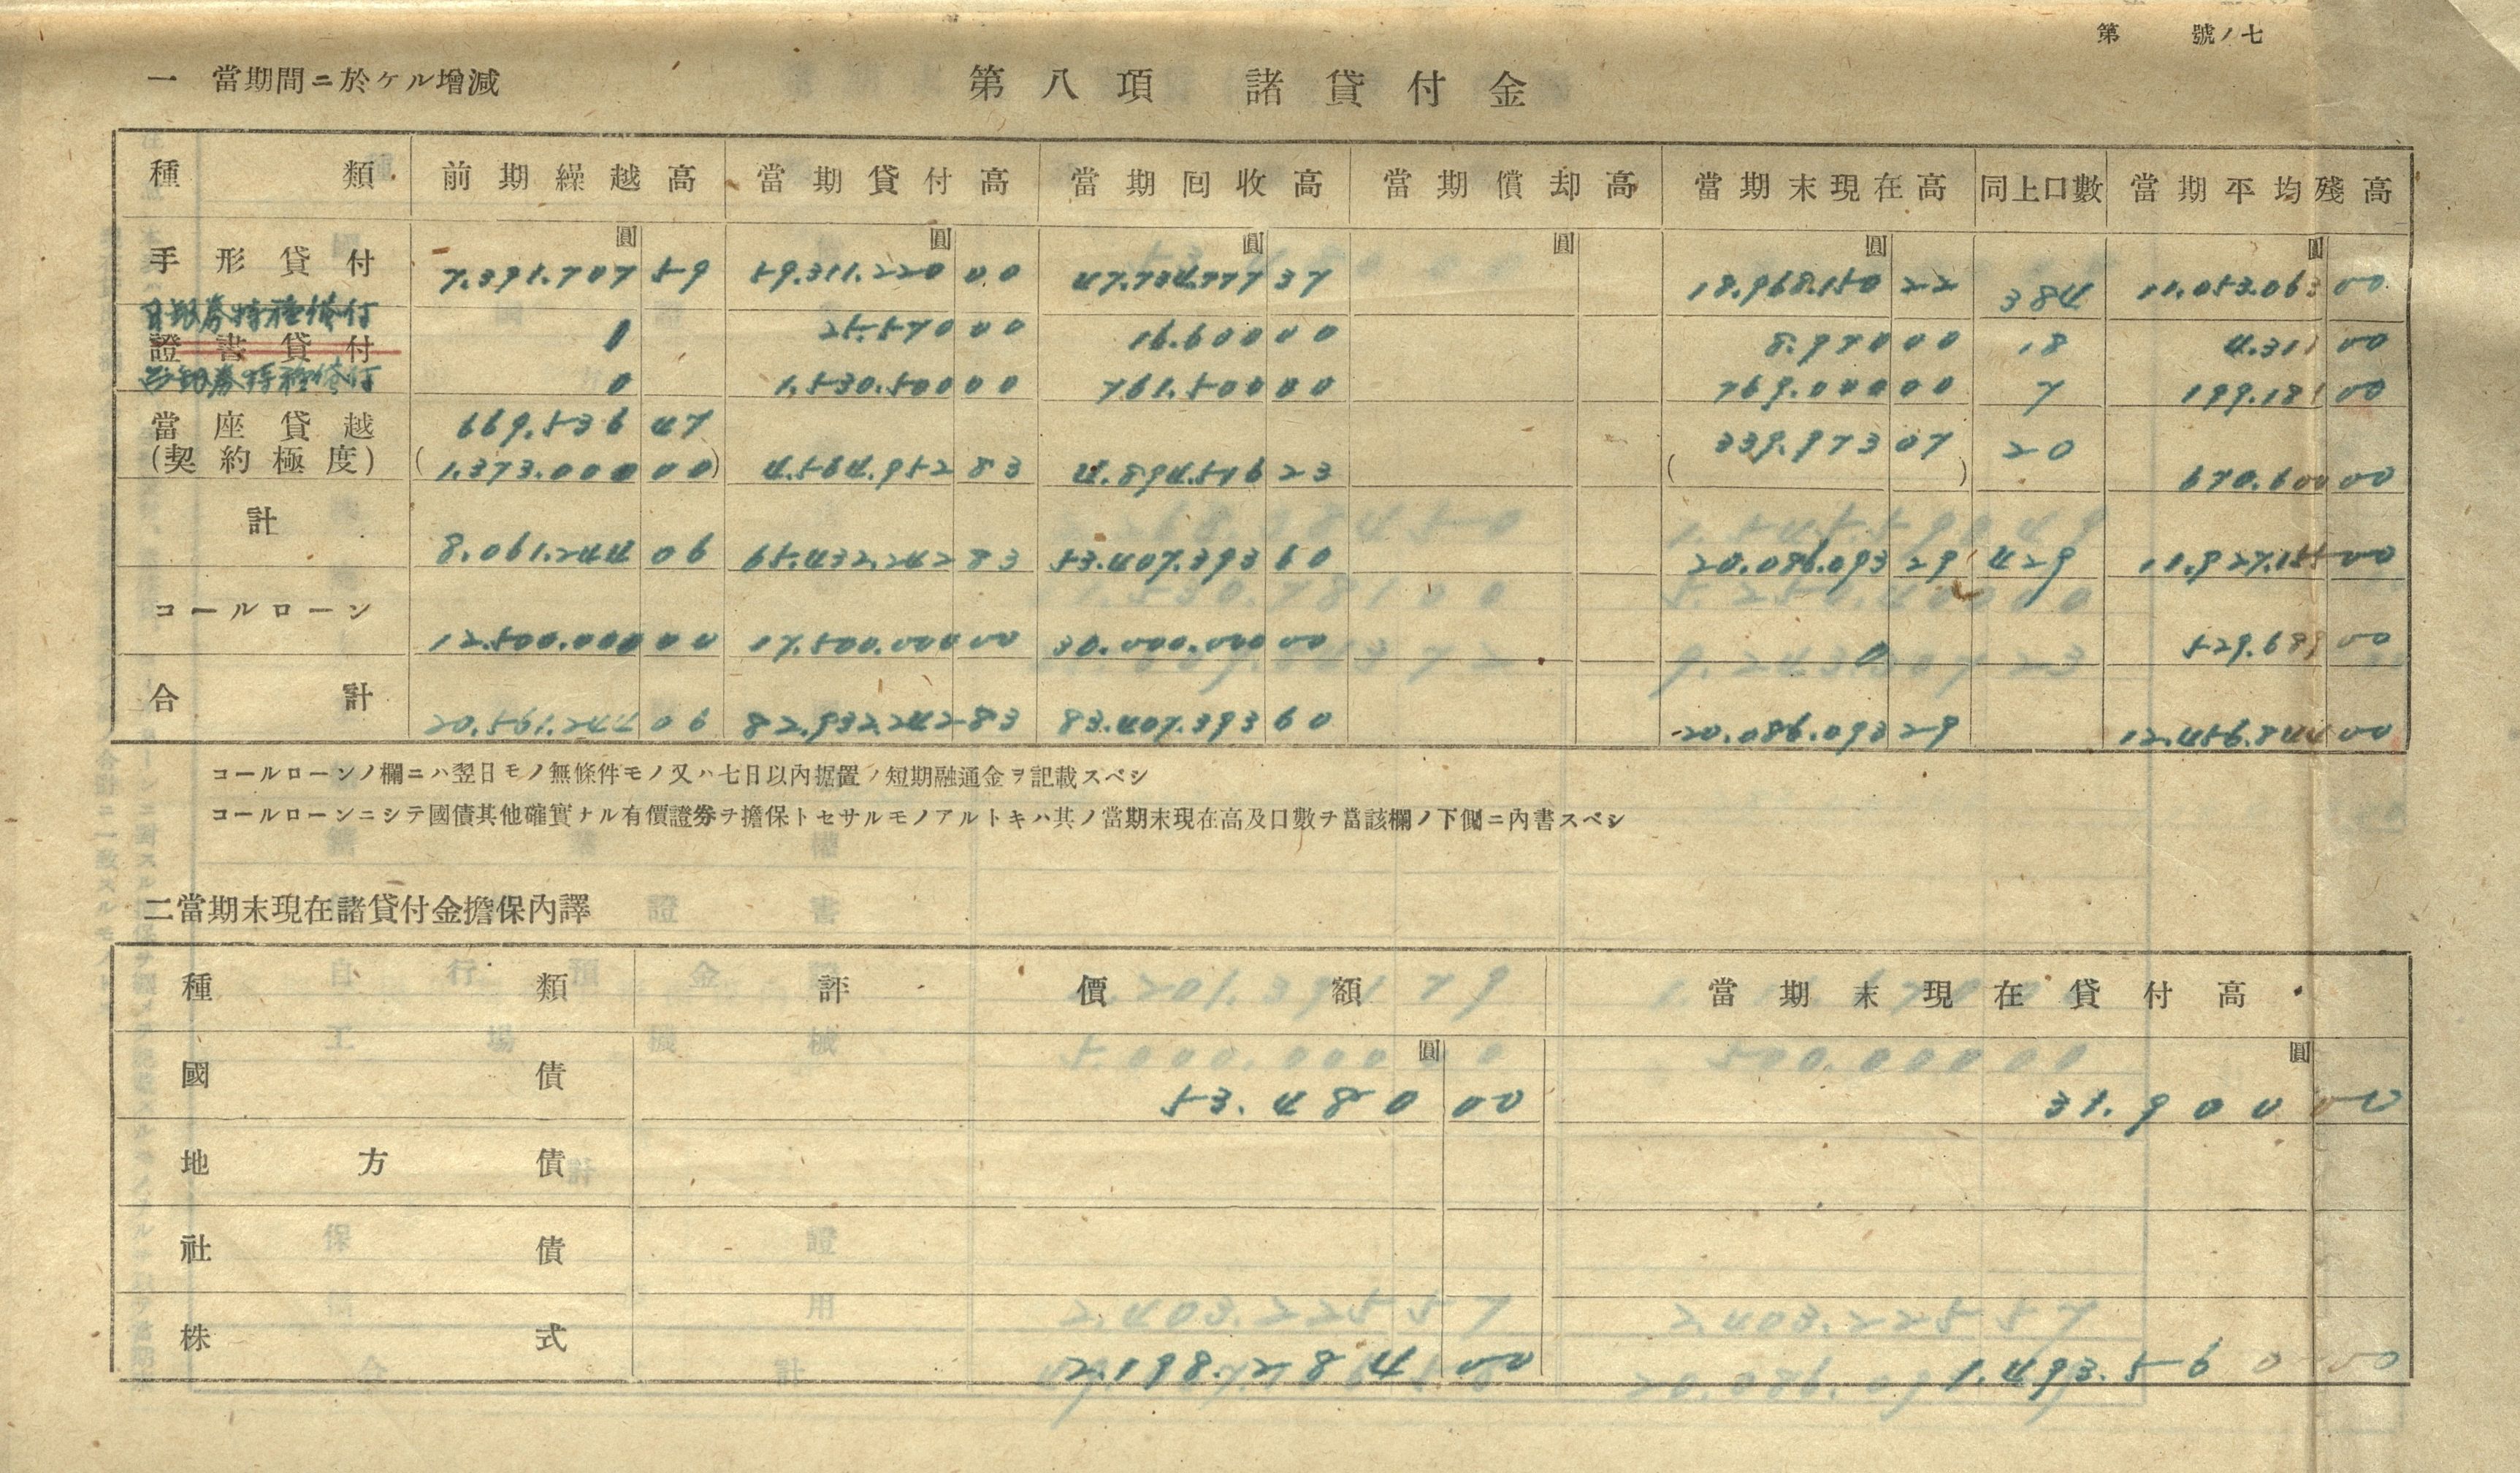 第 號ノ七
一 當期間ニ於ケル增減
第八項 諸貸付金
種類 前期繰越高 當期貸付高 當期回收高 當期償却高 當期末現在高 同上口數 當期平均殘高
圓 圓 圓 圓 圓 圓
手形貸付 7.391.707 59 59.311.220 00 47.734.777 37 18.968.150 22 384 11.053.063 00
日銀券特種貸付 0 25.570 00 16.600 00 8.970 00 18 4.311 00
證書貸付
台銀券特種貸付 0 1.530.500 00 761.500 00 769.000 00 7 199.181 00
當座貸越 669.536 47 339.973 07 20
(契約極度) (1.373.000 00) 4.564.952 83 4.894.516 23 ( ) 670.600 00
計 8.061.244 06 65.432.242 83 53.407.393 60 20.086.093 29 429 11.927.155 00
コールローン 12.500.000 00 17.500.000 00 30.000.000 00 0 529.689 00
合計 20.561.244 06 82.932.242 83 83.407.393 60 20.086.093 29 12.456.844 00
コールローンノ欄ニハ翌日モノ無條件モノ又ハ七日以內据置ノ短期融通金ヲ記載スベシ
コールローンニシテ國債其他確實ナル有價證券ヲ擔保トセサルモノアルトキハ其ノ當期末現在高及口數ヲ當該欄ノ下側ニ內書スベシ
二當期末現在諸貸付金擔保內譯
種類 評價額 當期末現在貸付高
圓 圓
國債 53.480 00 31.900 00
地方債
社債
株式 2.198.284 00 1.493.560 00